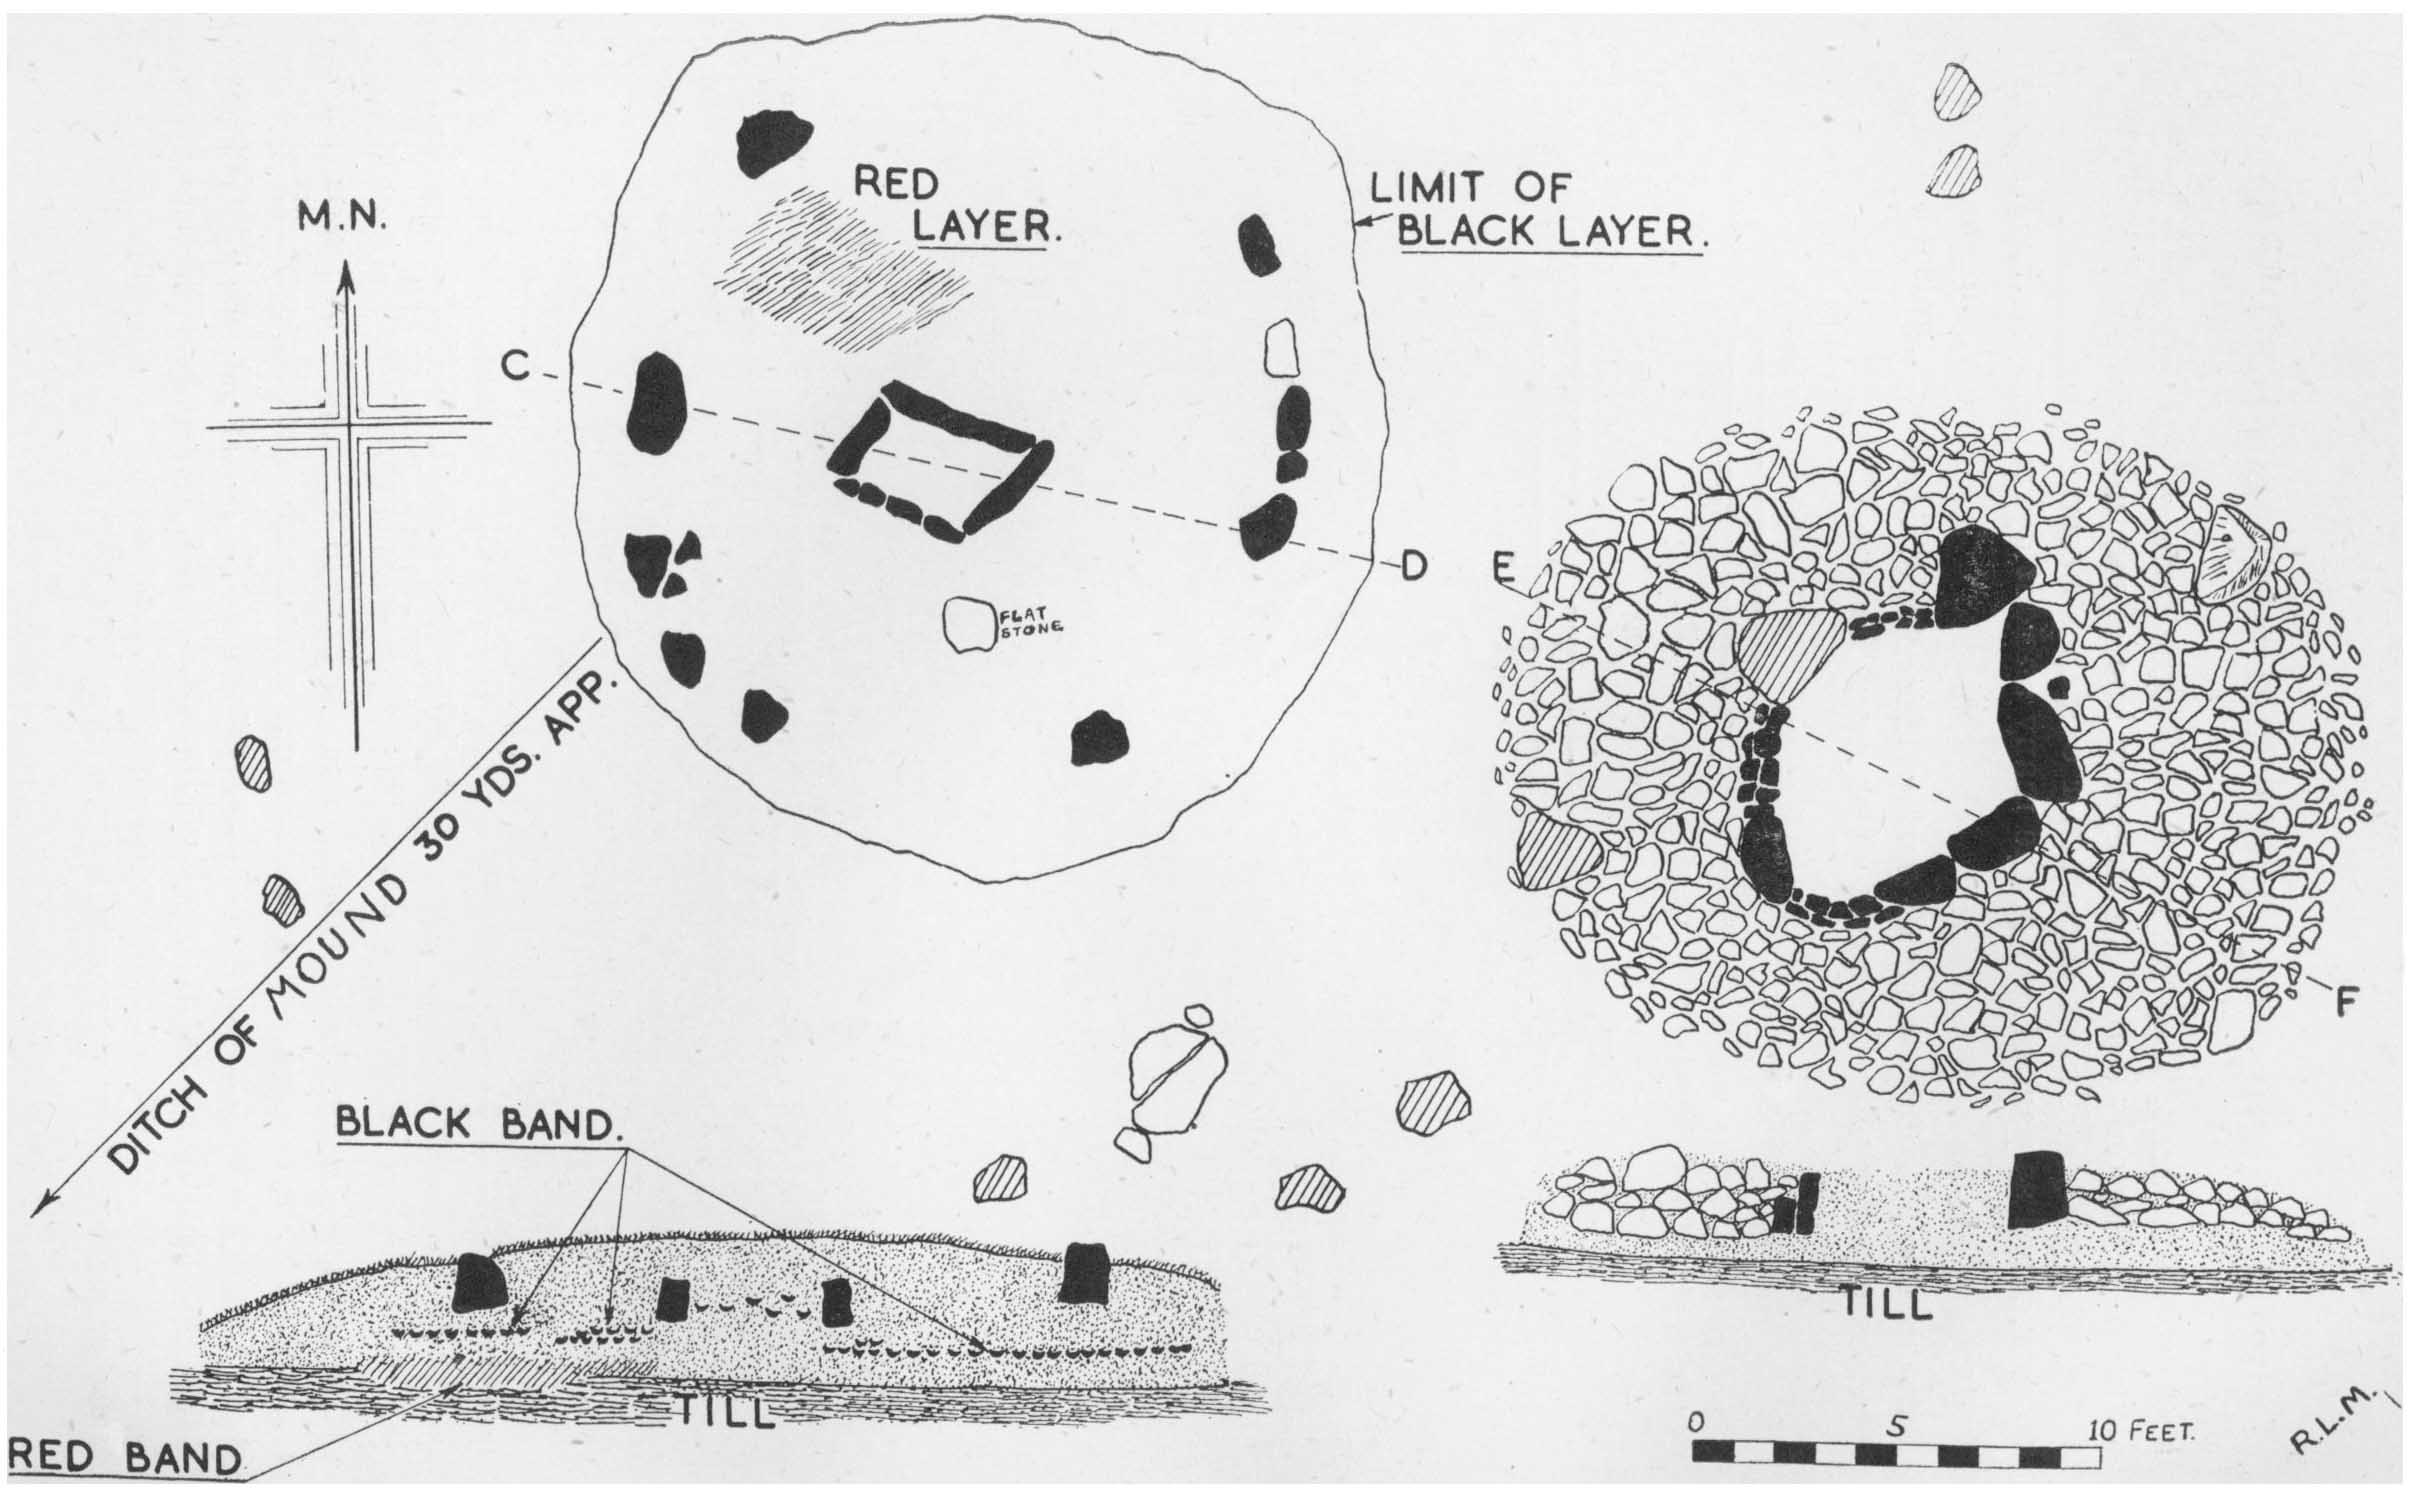 M.N.
RED
LAYER.
LIMIT OF
BLACK LAYER.
C
D
E
F
FLAT
STONE
DITCH OF MOUND 30 YDS. APP.
BLACK BAND.
TILL
RED BAND
TILL
0 5 10 FEET.
R.L.M.